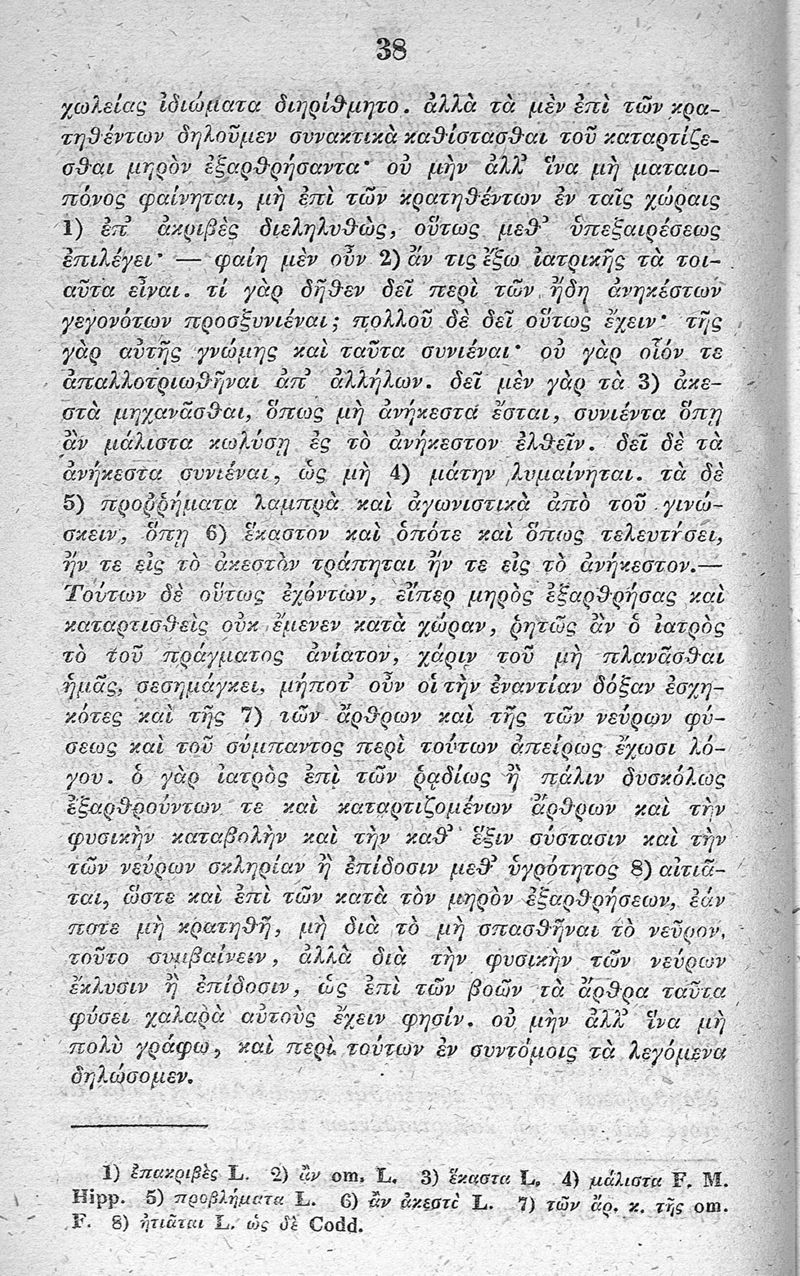 38
χωλείας ἰδιώματα διηρίθμητο. ἀλλὰ τὰ μὲν ἐπὶ τῶν κρα-
τηθέντων δηλοῦμεν συνακτικὰ καθίστασθαι τοῦ καταρτίζε-
σθαι μηρὸν ἐξαρθρήσαντα· οὐ μὴν ἀλλ᾽ ἵνα μὴ ματαιο-
πόνος φαίνηται, μὴ ἐπὶ τῶν κρατηθέντων ἐν ταῖς χώραις
1) ἐπ᾽ ἀκριβὲς διεληλυθὼς, οὕτως μεθ᾽ ὑπεξαιρέσεως
ἐπιλέγει· — φαίη μὲν οὖν 2) ἄν τις ἔξω ἰατρικῆς τὰ τοι-
αῦτα εἶναι. τί γὰρ δῆθεν δεῖ περὶ τῶν ἤδη ἀνηκέστων
γεγονότων προσξυνιέναι; πολλοῦ δὲ δεῖ οὕτως ἔχειν· τῆς
γὰρ αὐτῆς γνώμης καὶ ταῦτα συνιέναι· οὐ γὰρ οἷόν τε
ἀπαλλοτριωθῆναι ἀπ᾽ ἀλλήλων. δεῖ μὲν γὰρ τὰ 3) ἀκε-
στὰ μηχανᾶσθαι, ὅπως μὴ ἀνήκεστα ἔσται, συνιέντα ὅπη
ἂν μάλιστα κωλύσῃ ἐς τὸ ἀνήκεστον ἐλθεῖν. δεῖ δὲ τὰ
ἀνήκεστα συνιέναι, ὡς μὴ 4) μάτην λυμαίνηται. τὰ δὲ
5) προῤῥήματα λαμπρὰ καὶ ἀγωνιστικὰ ἀπὸ τοῦ γινώ-
σκειν, ὅπη 6) ἕκαστον καὶ ὁπότε καὶ ὅπως τελευτήσει,
ἤν τε εἰς τὸ ἀκεστὸν τράπηται ἤν τε εἰς τὸ ἀνήκεστον.—
Τούτων δὲ οὕτως ἐχόντων, εἴπερ μηρὸς ἐξαρθρήσας καὶ
καταρτισθεὶς οὐκ ἔμενεν κατὰ χώραν, ῥητῶς ἂν ὁ ἰατρὸς
τὸ τοῦ πράγματος ἀνίατον, χάριν τοῦ μὴ πλανᾶσθαι
ἡμᾶς, σεσημάγκει, μήποτ᾽ οὖν οἱ τὴν ἐναντίαν δόξαν ἐσχη-
κότες καὶ τῆς 7) τῶν ἄρθρων καὶ τῆς τῶν νεύρων φύ-
σεως καὶ τοῦ σύμπαντος περὶ τούτων ἀπείρως ἔχωσι λό-
γου. ὁ γὰρ ἰατρὸς ἐπὶ τῶν ῥᾳδίως ἢ πάλιν δυσκόλως
ἐξαρθρούντων τε καὶ καταρτιζομένων ἄρθρων καὶ τὴν
φυσικὴν καταβολὴν καὶ τὴν καθ᾽ ἕξιν σύστασιν καὶ τὴν
τῶν νεύρων σκληρίαν ἢ ἐπίδοσιν μεθ᾽ ὑγρότητος 8) αἰτιᾶ-
ται, ὥστε καὶ ἐπὶ τῶν κατὰ τὸν μηρὸν ἐξαρθρήσεων, ἐάν
ποτε μὴ κρατηθῇ, μὴ διὰ τὸ μὴ σπασθῆναι τὸ νεῦρον,
τοῦτο συμβαίνειν, ἀλλὰ διὰ τὴν φυσικὴν τῶν νεύρων
ἔκλυσιν ἢ ἐπίδοσιν, ὡς ἐπὶ τῶν βοῶν τὰ ἄρθρα ταῦτα
φύσει χαλαρὰ αὐτοὺς ἔχειν φησίν. οὐ μὴν ἀλλ᾽ ἵνα μὴ
πολὺ γράφω, καὶ περὶ τούτων ἐν συντόμοις τὰ λεγόμενα
δηλώσομεν.
1) ἐπακριβὲς L. 2) ἂν om. L. 3) ἕκαστα L. 4) μάλιστα F. M.
Hipp. 5) προβλήματα L. 6) ἂν ἀκεστὲ L. 7) τῶν ἄρ. κ. τῆς om.
F. 8) ἠτιᾶται L. ὡς δὲ Codd.